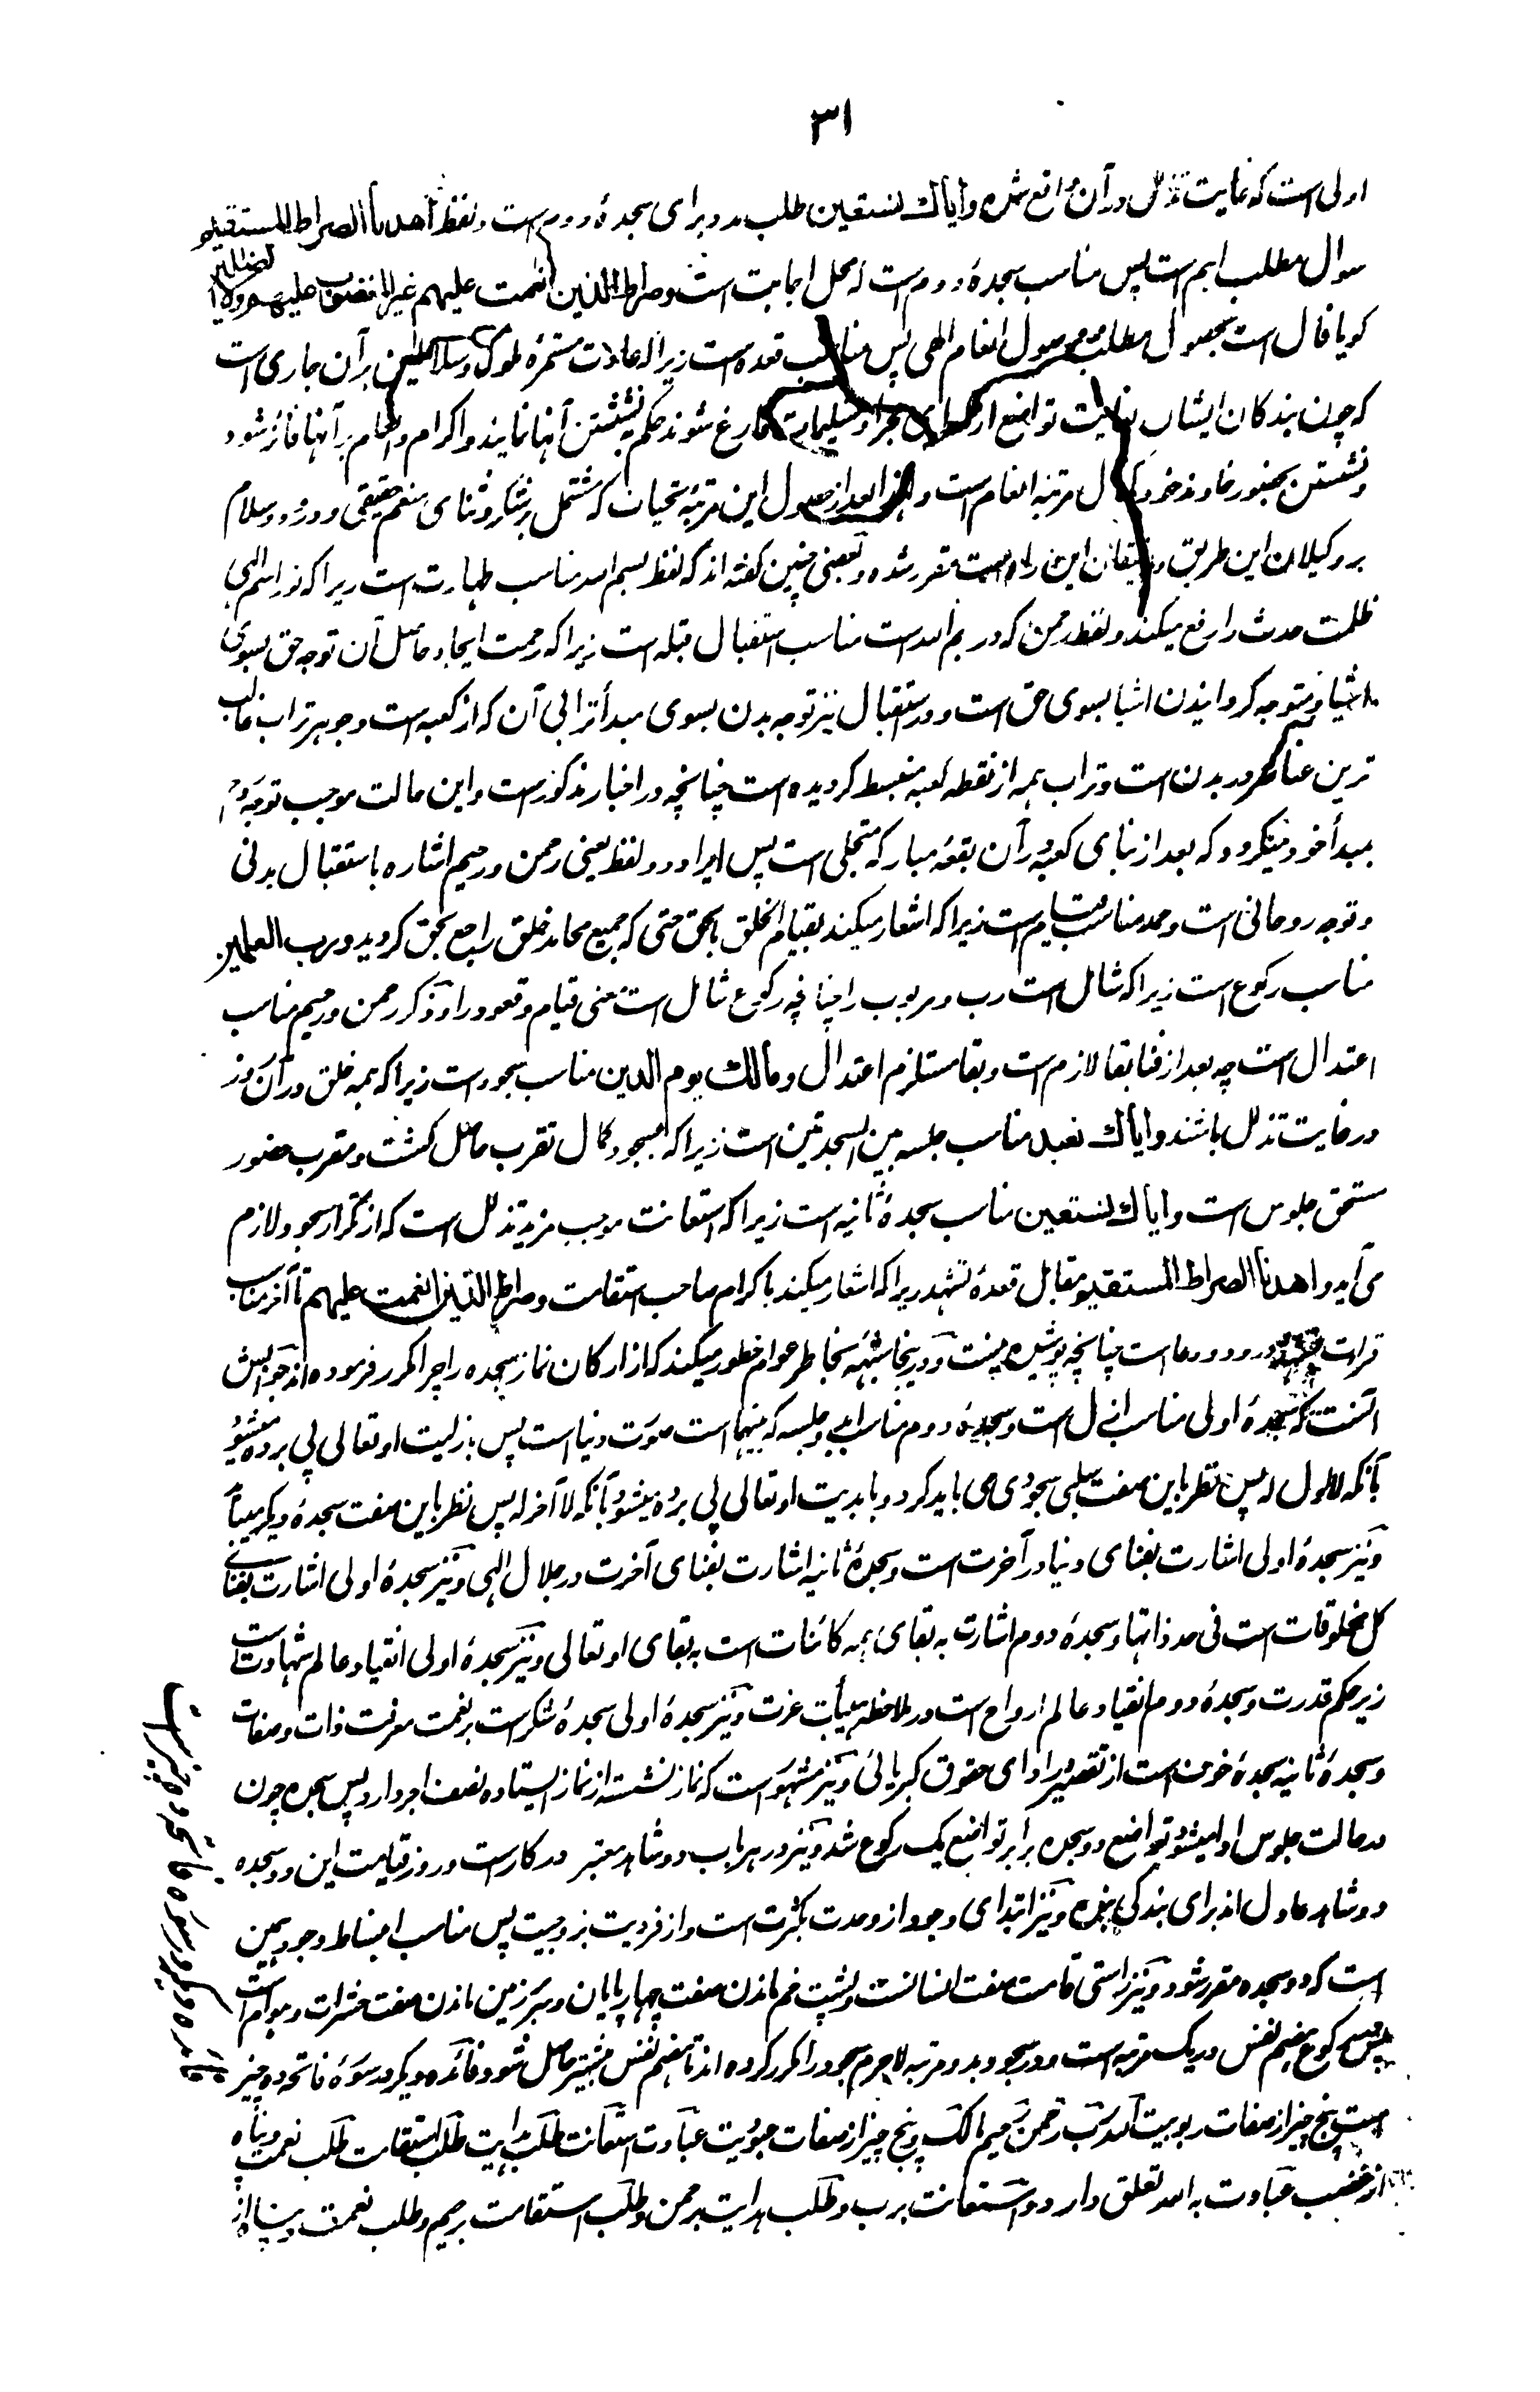 ۳۱
اولی است که غایت تذلل در آن واقع شده وایاك نستعین طلب مدد برای سجدهٔ دوم است و لفظ اهدنا الصراط المستقیم
سوال مطلب اهم است پس مناسب سجدهٔ دوم است که محل اجابت است و صراط الذین انعمت علیهم غیر المغضوب علیهم ولا الضالین
گویا فال است بحصول مطلب و وصول انعام الهی پس مناسب قعده است زیرا که عادت مستمرهٔ ملوک و سلاطین بر آن جاری است
که چون بندگان ایشان بغایت تواضع از مجرا و تسلیمات فارغ شوند حکم نشستن آنها نمایند و اکرام و انعام بر آنها فائز شود
و نشستن بحضور خاوند خود کمال مرتبه انعام است و لهذا بعد از حصول این مرتبه تحیات که مشتمل بر شکر و ثنای منعم حقیقی و درود و سلام
بر وکیلان این طریق و رفیقان این راه است مقرر شده و بعضی چنین گفته اند که لفظ بسم الله مناسب طهارت است زیرا که نور اسم الهی
ظلمت حدث را رفع میکند و لفظ رحمن که در بسم الله است مناسب استقبال قبله است زیرا که رحمت ایجاد حاصل آن توجه حق بسوی
اشیا و متوجه گردانیدن اشیا بسوی حق است و در استقبال نیز توجه بدن بسوی مبدأ ترابی آن که از کعبه است و جوهر تراب غالب
ترین عناصر در بدن است و تراب همه از نقطه کعبه منبسط گردیده است چنانچه در اخبار مذکور است و این حالت موجب توجه روح
بمبدأ خود میگردد که بعد از بنای کعبه در آن بقعه مبارکه متجلی است پس ایراد دو لفظ یعنی رحمن و رحیم اشاره باستقبال بدنی
و توجه روحانی است و حمد مناسب قیام است زیرا که اشعار میکند بقیام الخلق بالحق حتی که جمیع محامد خلق راجع بحق گردید و رب العلمین
مناسب رکوع است زیرا که شامل است رب و مربوب را چنانچه رکوع شامل است معنی قیام و قعود را و ذکر رحمن و رحیم مناسب
اعتدال است چه بعد از فنا بقا لازم است و بقا مستلزم اعتدال و مالك یوم الدین مناسب سجود است زیرا که همه خلق در آن روز
در غایت تذلل باشند و ایاك نعبد مناسب جلسه بین السجدتین است زیرا که بسجود کمال تقرب حاصل گشت و مقرب حضور
مستحق جلوس است و ایاك نستعین مناسب سجدهٔ ثانیه است زیرا که استعانت موجب مزید تذلل است که از تکرار سجود لازم
می آید و اهدنا الصراط المستقیم مقابل قعدهٔ تشهد زیرا که اشعار میکند باکرام صاحب استقامت و صراط الذین انعمت علیهم تا آخر مناسب
قرات درود و دعا است چنانچه پوشیده نیست و در ینجا شبهه بخاطر عوام خطور میکند که از ارکان نماز سجده را چرا مکرر فرموده اند جوابش
آنست که سجدهٔ اولی مناسب ازل است و سجدهٔ دوم مناسب ابد و جلسه که بینهما است صورت دنیا است پس بازلیت او تعالی پی برده میشود
بآنکه لا اول له پس نظر باین صفت سلبی سجودی می باید کرد و بابدیت او تعالی پی برده میشود بآنکه لا آخر له پس نظر باین صفت سجدهٔ دیگر میباید
و نیز سجدهٔ اولی اشارت بفنای دنیا در آخرت است و سجدهٔ ثانیه اشارت بفنای آخرت در جلال الهی و نیز سجدهٔ اولی اشارت بفنای
کل مخلوقات است فی حد ذاتها و سجدهٔ دوم اشارت به بقای همه کائنات است به بقای او تعالی و نیز سجدهٔ اولی انقیاد عالم شهادت است
زیر حکم قدرت و سجدهٔ دوم انقیاد عالم ارواح است در ملاحظه عزت و نیز سجدهٔ اولی سجدهٔ شکر است بر نعمت معرفت ذات و صفات
و سجدهٔ ثانیه سجدهٔ خوف است از تقصیر در ادای حقوق کبریائی و نیز مشهور است که نماز نشسته از نماز ایستاده نصف اجر دارد پس سجده چون
در حالت جلوس ادا میشود تواضع دو سجده برابر تواضع یک رکوع شد و نیز در هر باب دو شاهد معتبر در کار است و روز قیامت این دو سجده
دو شاهد عادل اند برای بندگی بنده و نیز ابتدای وجود از وحدت بکثرت است و از فردیت بزوجیت پس مناسب انبساط وجود همین
است که دو سجده مقرر شود و نیز راستی قامت صفت انسانست و پشت خم ماندن صفت چهار پایان و سر بر زمین ماندن صفت حشرات و هوام است
پس رکوع هضم نفس در یک مرتبه است و در سجود بدو مرتبه لاجرم سجود را مکرر کرده اند تا هضم نفس بیشتر حاصل شود و فائده دیگر در سورهٔ فاتحه ده چیز
است پنج چیز از صفات ربوبیت الله رب رحمن رحیم مالک و پنج چیز از صفات عبودیت عبادت استعانت طلب هدایت طلب استقامت طلب نعمت و پناه
از غضب عبادت به الله تعلق دارد و استعانت برب و طلب هدایت برحمن و طلب استقامت برحیم و طلب نعمت و پناه از
فائده دیگر در سورهٔ فاتحه ده چیز است